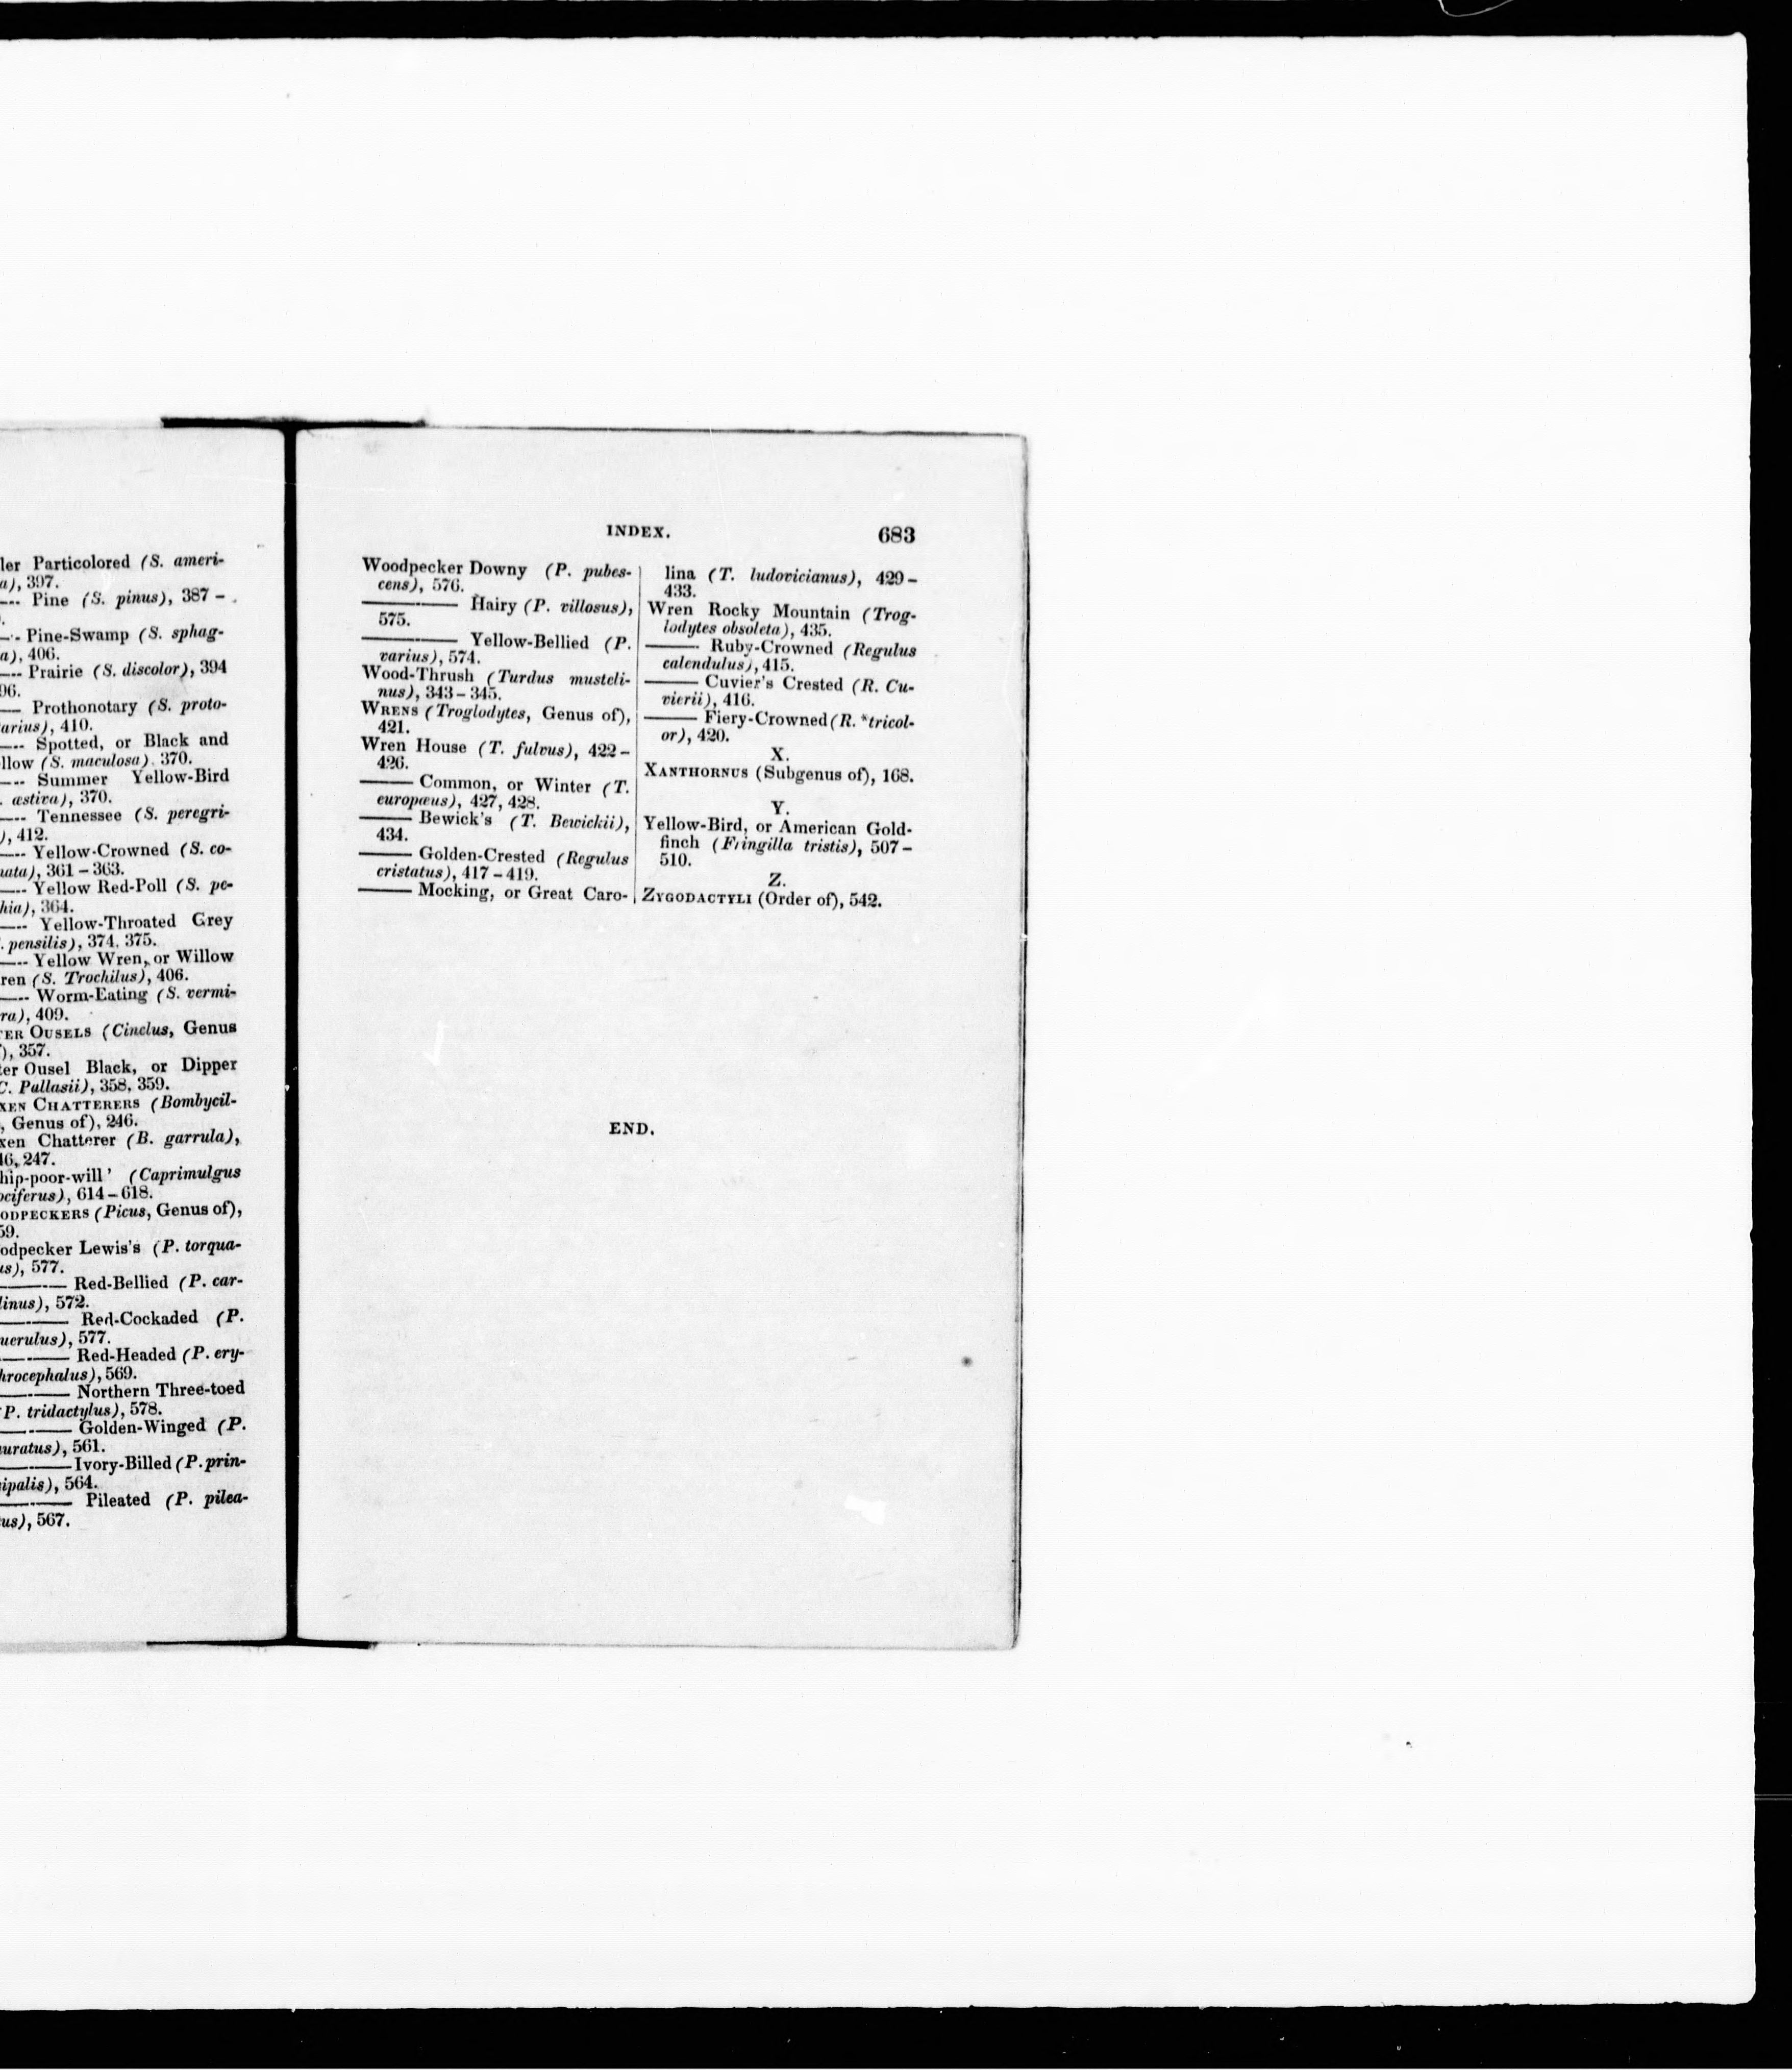 ler Particolored (S. ameri-
a), 397.
Pine (S. pinus), 387 –
Pine-Swamp (S. sphag-
a), 406.
Prairie (S. discolor), 394
96.
Prothonotary (S. proto-
arius), 410.
Spotted, or Black and
llow (S. maculosa). 370.
Summer Yellow-Bird
. æstiva), 370.
Tennessee (S. peregri-
), 412.
Yellow-Crowned (S. co-
uata), 361 – 363.
Yellow Red-Poll (S. pe-
hia), 364.
Yellow-Throated Grey
. pensilis), 374, 375.
Yellow Wren, or Willow
ren (S. Trochilus), 406.
Worm-Eating (S. vermi-
ra), 409.
ER OUSELS (Cinclus, Genus
), 357.
er Ousel Black, or Dipper
C. Pallasii), 358, 359.
XEN CHATTERERS (Bombycil-
, Genus of), 246.
xen Chatterer (B. garrula),
46, 247.
hip-poor-will' (Caprimulgus
ociferus), 614 – 618.
ODPECKERS (Picus, Genus of),
59.
odpecker Lewis's (P. torqua-
us), 577.
Red-Bellied (P. car-
linus), 572.
Red-Cockaded (P.
uerulus), 577.
Red-Headed (P. ery-
hrocephalus), 569.
Northern Three-toed
P. tridactylus), 578.
Golden-Winged (P.
uratus), 561.
Ivory-Billed (P. prin-
ipalis), 564.
Pileated (P. pilea-
us), 567.
INDEX. 683
Woodpecker Downy (P. pubes-
cens), 576.
——— Hairy (P. villosus),
575.
——— Yellow-Bellied (P.
varius), 574.
Wood-Thrush (Turdus musteli-
nus), 343 – 345.
WRENS (Troglodytes, Genus of),
421.
Wren House (T. fulvus), 422 –
426.
—— Common, or Winter (T.
europæus), 427, 428.
—— Bewick's (T. Bewickii),
434.
—— Golden-Crested (Regulus
cristatus), 417 – 419.
—— Mocking, or Great Caro-
lina (T. ludovicianus), 429 –
433.
Wren Rocky Mountain (Trog-
lodytes obsoleta), 435.
—— Ruby-Crowned (Regulus
calendulus), 415.
—— Cuvier's Crested (R. Cu-
vierii), 416.
—— Fiery-Crowned (R. *tricol-
or), 420.
X.
XANTHORNUS (Subgenus of), 168.
Y.
Yellow-Bird, or American Gold-
finch (Fringilla tristis), 507 –
510.
Z.
ZYGODACTYLI (Order of), 542.
END.